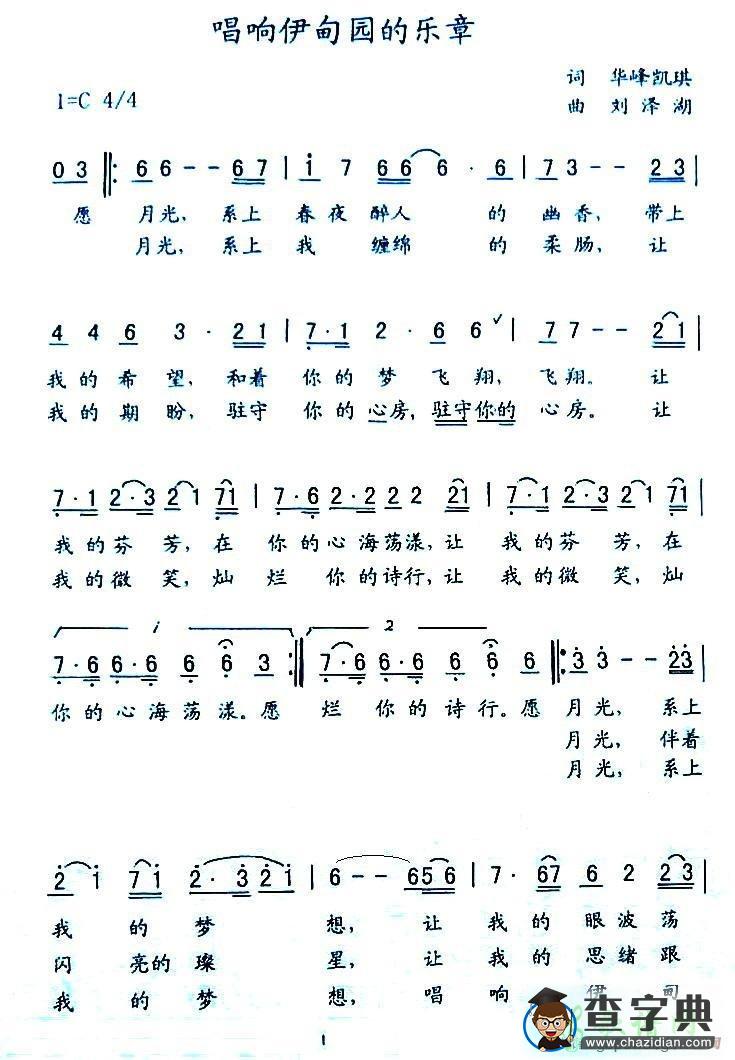 唱响伊甸园的乐章
词 华峰凯琪
1=C 4/4
曲 刘泽湖
0 3 |: 6 6 - - 6 7 | i 7 6 6 6 · 6 | 7 3 - - 2 3 |
愿 月光, 系上 春夜醉人 的 幽香, 带上
月光, 系上 我 缠绵 的 柔肠, 让
4 4 6 3 · 2 1 | 7 · 1 2 · 6 6 6 ✓ | 7 7 - - 2 1 |
我的希望, 和着 你的梦 飞翔, 飞翔。 让
我的期盼, 驻守 你的心房, 驻守你的 心房。 让
7 · 1 2 · 3 2 1 7 1 | 7 · 6 2 · 2 2 2 2 1 | 7 · 1 2 · 3 2 1 7 1 |
我的芬芳, 在 你的心海荡漾, 让 我的芬芳, 在
我的微笑, 灿烂 你的诗行, 让 我的微笑, 灿
1 2
7 · 6 6 · 6 6 6 3 :| 7 · 6 6 · 6 6 6 6 |: 3 3 - - 2 3 |
你的心海荡漾。愿 烂你的诗行。愿 月光, 系上
月光, 伴着
月光, 系上
2 i 7 i 2 · 3 2 i | 6 - - 6 5 6 | 7 · 6 7 6 2 2 3 |
我 的梦 想, 让 我的眼波荡
闪 亮的璨 星, 让 我的思绪跟
我 的梦 想, 唱 响 伊甸
1
查字典
www.chazidian.com